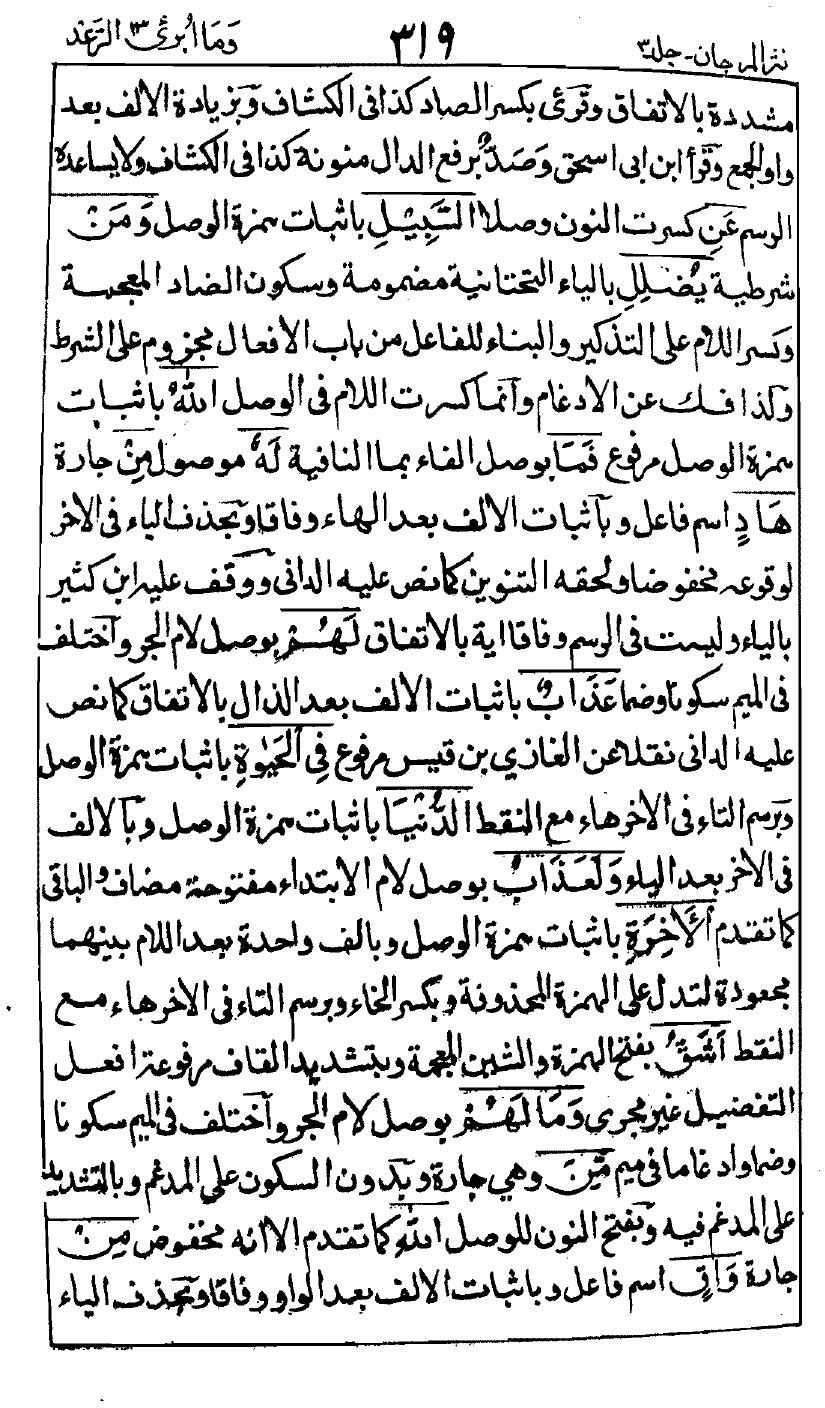 نثر المرجان - جلد٣ ٣١٩ وَمَا أُبَرِّئُ ١٣ الرَّعْد
مشددة بالاتفاق وقرئ بكسر الصاد كذا فى الكشاف وَبزيادة الالف بعد
واو الجمع وَقرأ ابن ابى اسحق وَصَدٌّ برفع الدال منونة كذا فى الكشاف ولا يساعده
الرسم عَنِ كسرت النون وصلا السَّبِيْلِ باثبات همزة الوصل وَمَنْ
شرطية يُضْلِلِ بالياء التحتانية مضمومة وسكون الضاد المعجمة
وكسر اللام على التذكير والبناء للفاعل من باب الافعال مجزوم على الشرط
وكذا فك عن الادغام وانما كسرت اللام فى الوصل اللهُ باثبات
همزة الوصل مرفوع فَمَا بوصل الفاء بما النافية لَهٗ موصول مِنْ جارة
هَادٍ اسم فاعل وباثبات الالف بعد الهاء وفاقا وبحذف الياء فى الاخر
لوقوعه مخفوضا ولحقه التنوين كما نص عليه الدانى ووقف عليه ابن كثير
بالياء وليست فى الرسم وفاقا اية بالاتفاق لَهُمْ بوصل لام الجر واختلف
فى الميم سكونا وضما عَذَابٌ باثبات الالف بعد الذال بالاتفاق كما نص
عليه الدانى نقلا عن الغازي بن قيس مرفوع فِي الْحَيٰوةِ باثبات همزة الوصل
وبرسم التاء فى الاخر هاء مع النقط الدُّنْيَا باثبات همزة الوصل وبالالف
فى الاخر بعد الياء وَلَعَذَابُ بوصل لام الابتداء مفتوحة مضاف والباقى
كما تقدم الْاٰخِرَةِ باثبات همزة الوصل وبالف واحدة بعد اللام بينهما
مجعودة لتدل على الهمزة المحذوفة وبكسر الخاء وبرسم التاء فى الاخر هاء مع
النقط اَشَقُّ بفتح الهمزة والشين المعجمة وبتشديد القاف مرفوعة افعل
التفضيل غير مجرى وَمَا لَهُمْ بوصل لام الجر واختلف فى الميم سكونا
وضما وادغاما فى ميم مِّنَ وهي جارة وبدون السكون على المدغم وبالتشديد
على المدغم فيه وبفتح النون للوصل اللهِ كما تقدم الا انه مخفوض مِنْ
جارة وَاقٍ اسم فاعل وباثبات الالف بعد الواو وفاقا وبحذف الياء